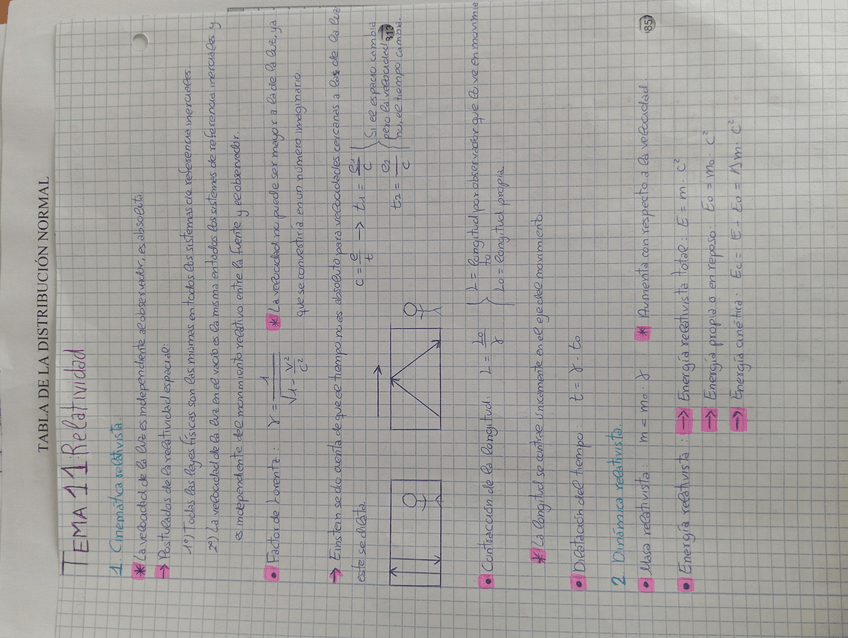 TABLA DE LA DISTRIBUCIÓN NORMAL
TEMA 11: Relatividad
1 Cinemática relativista.
* La velocidad de la luz es independiente al observador, es absoluta.
→ Postulados de la relatividad especial:
1º) Todas las leyes físicas son las mismas en todos los sistemas de referencia inerciales.
2º) La velocidad de la luz en el vacío es la misma en todos los sistemas de referencia inerciales y
es independiente del movimiento relativo entre la fuente y el observador.
• Factor de Lorentz: γ = 1 / √(1 - v²/c²) * La velocidad no puede ser mayor a la de la luz, ya
que se convertiría en un número imaginario
→ Einstein se da cuenta de que el tiempo no es absoluto para velocidades cercanas a las de la luz
este se dilata.
c = e/t → t1 = e1/c
t2 = e2/c
Si el espacio cambia
pero la velocidad
no, el tiempo cambia.
• Contracción de la longitud: L = L0/γ
L = longitud por observador que lo ve en movimien
to
L0 = longitud propia
* La longitud se contrae únicamente en el eje del movimiento
• Dilatación del tiempo t = γ · t0
2 Dinámica relativista.
• Masa relativista m = m0 · γ * Aumenta con respecto a la velocidad
• Energía relativista: → Energía relativista total: E = m · c²
→ Energía propia o en reposo: E0 = m0 · c²
→ Energía cinética: Ec = E - E0 = Δm · c²
857